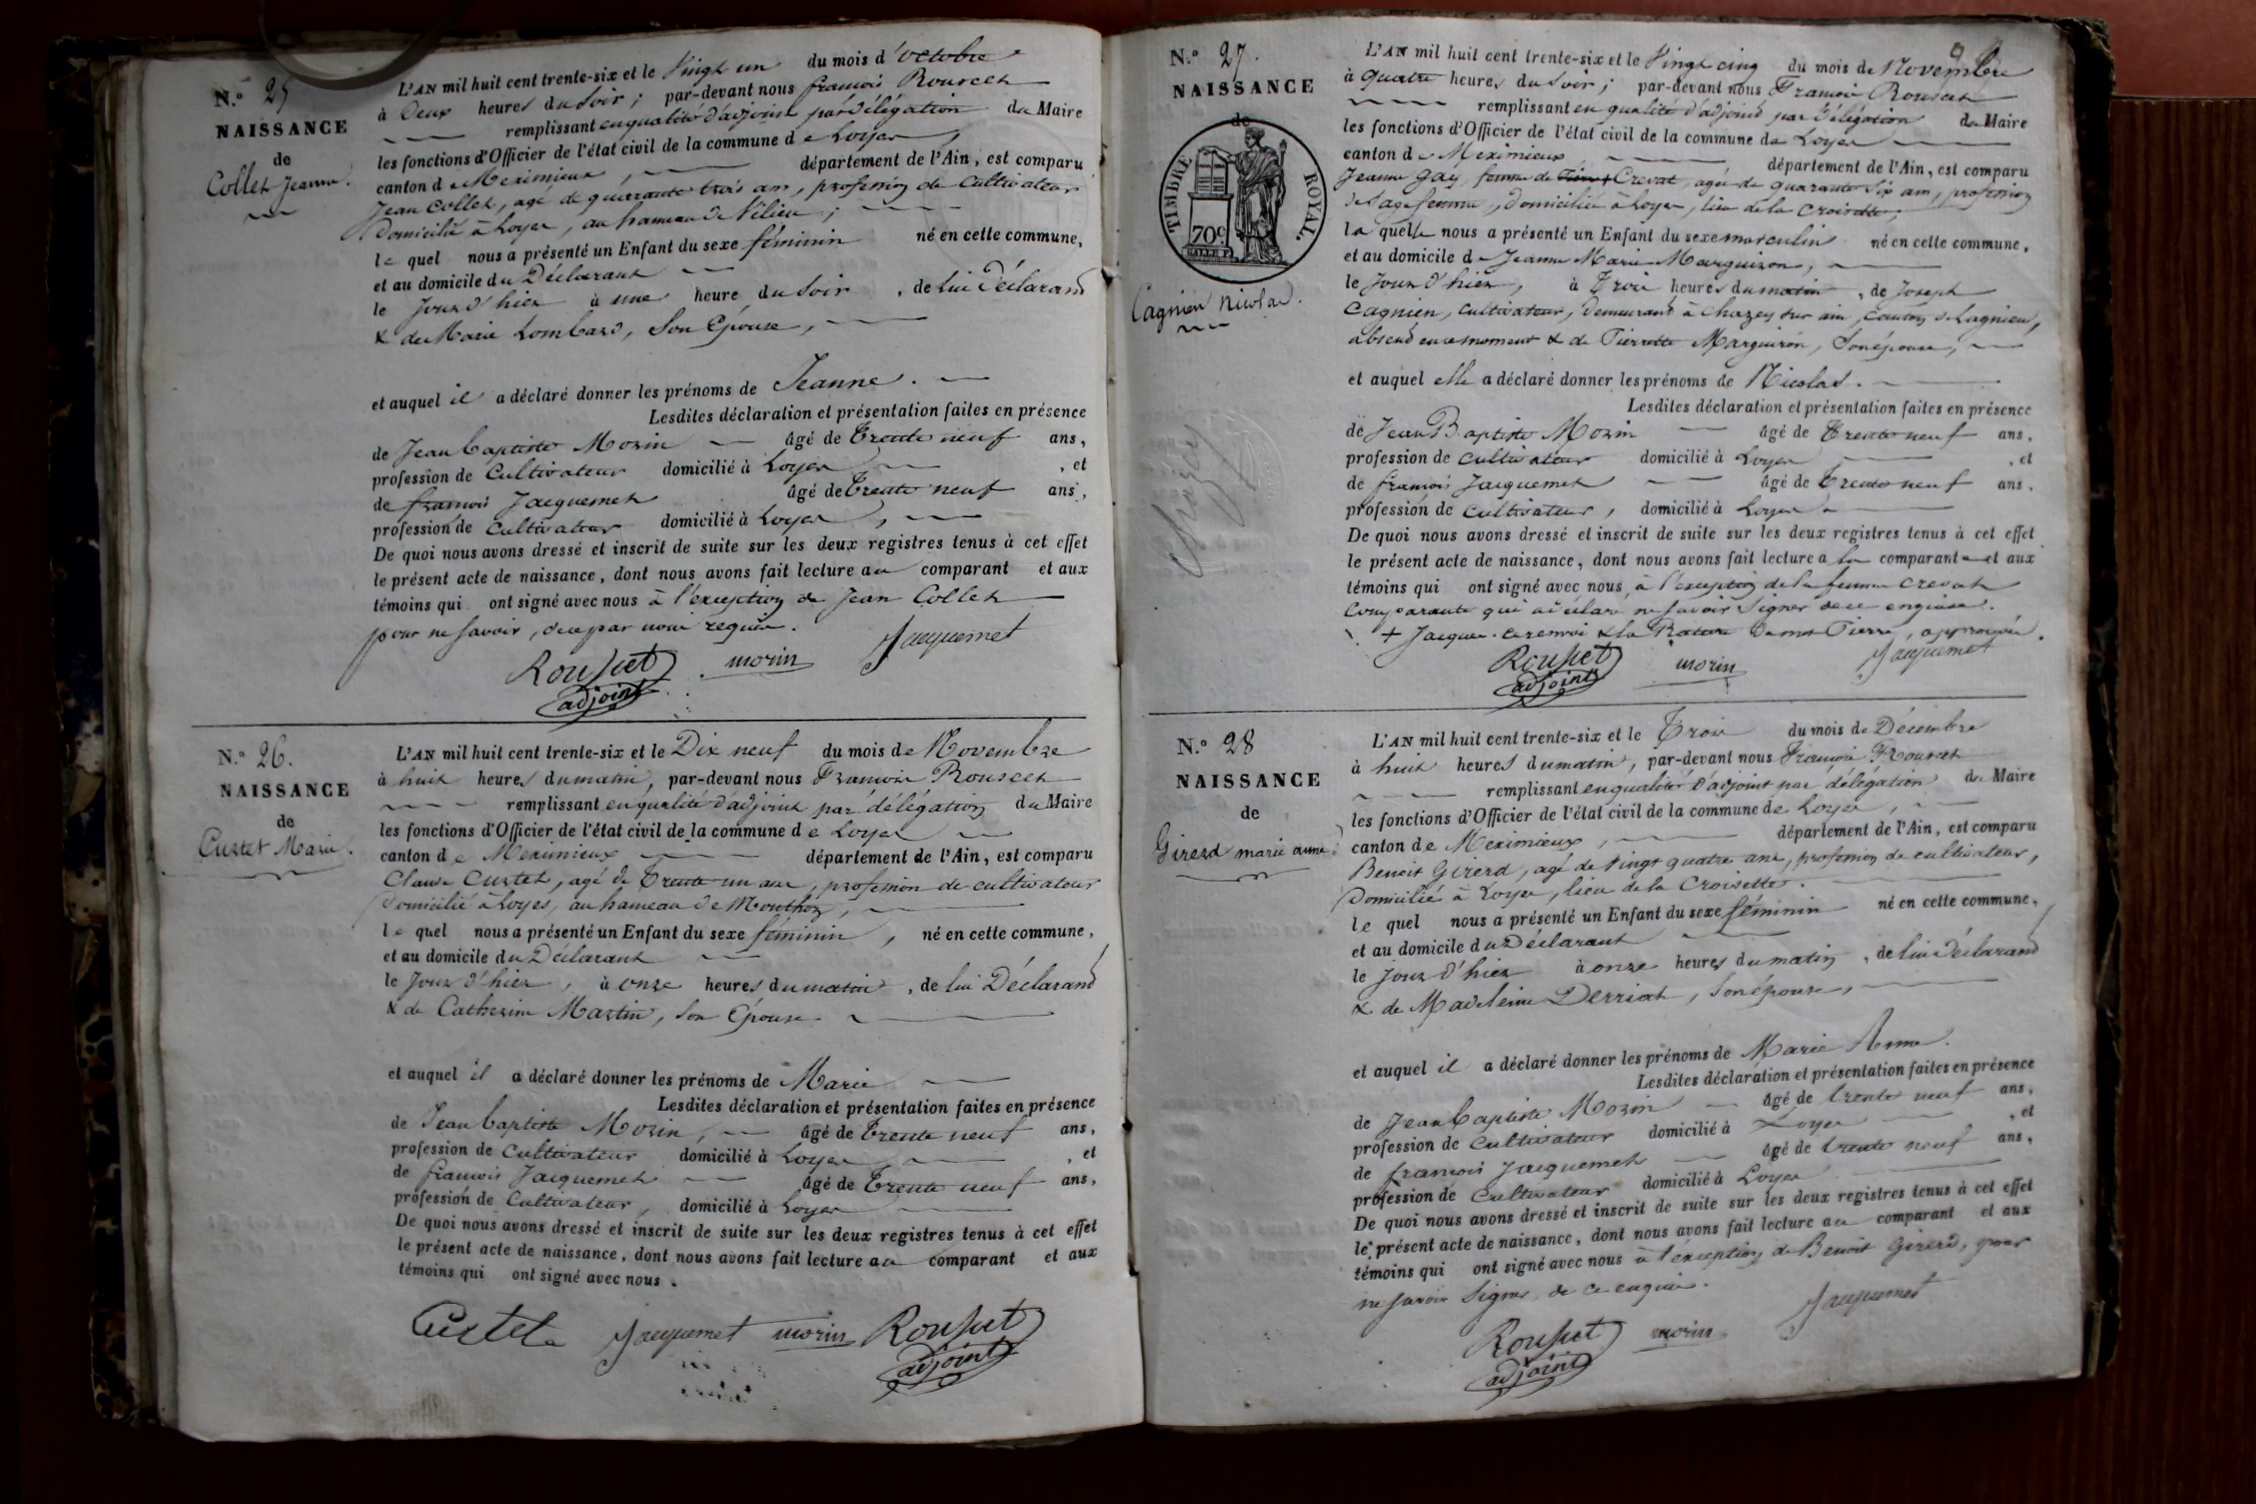 N.° 25
NAISSANCE
de
Collet Jeanne.
L'AN mil huit cent trente-six et le Vingt un du mois d'octobre
à Deux heures du Soir; par-devant nous françois Rousset
remplissant en qualité d'adjoint par délégation du Maire
les fonctions d'Officier de l'état civil de la commune de Loyes
canton de Meximieux, département de l'Ain, est comparu
Jean Collet, agé de quarante trois ans, profession de Cultivateur
Domicilié à Loyes, au hameau de Vilieu;
lequel nous a présenté un Enfant du sexe féminin né en cette commune,
et au domicile du Déclarant
le Jour d'hier à une heure du Soir, de lui Déclarand
& de Marie Lombard, Son Epouse,
et auquel il a déclaré donner les prénoms de Jeanne.
Lesdites déclaration et présentation faites en présence
de Jean baptiste Morin âgé de Trente neuf ans,
profession de Cultivateur domicilié à Loyes, et
de françois Jacquemet âgé de Trente neuf ans,
profession de Cultivateur domicilié à Loyes,
De quoi nous avons dressé et inscrit de suite sur les deux registres tenus à cet effet
le présent acte de naissance, dont nous avons fait lecture au comparant et aux
témoins qui ont signé avec nous à l'exception de Jean Collet
pour ne Savoir, de ce par nous requis.
Rousset morin Jacquemet
adjoint
N.° 26.
NAISSANCE
de
Curtet Marie.
L'AN mil huit cent trente-six et le Dix neuf du mois de Novembre
à huit heures du matin, par-devant nous François Rousset
remplissant en qualité d'adjoint par délégation du Maire
les fonctions d'Officier de l'état civil de la commune de Loyes
canton de Meximieux département de l'Ain, est comparu
Claude Curtet, agé de Trente un ans, profession de cultivateur
Domicilié à Loyes, au hameau de Monthoz,
lequel nous a présenté un Enfant du sexe féminin, né en cette commune,
et au domicile du Déclarant
le Jour d'hier, à onze heures du matin, de lui Déclarand
& de Catherine Martin, Son Epouse
et auquel il a déclaré donner les prénoms de Marie
Lesdites déclaration et présentation faites en présence
de Jean baptiste Morin, âgé de Trente neuf ans,
profession de Cultivateur domicilié à Loyes, et
de françois Jacquemet âgé de Trente neuf ans,
profession de Cultivateur, domicilié à Loyes
De quoi nous avons dressé et inscrit de suite sur les deux registres tenus à cet effet
le présent acte de naissance, dont nous avons fait lecture au comparant et aux
témoins qui ont signé avec nous.
Curtet Jacquemet morin Rousset
adjoint
N.° 27.
NAISSANCE
de
TIMBRE ROYAL.
70c
Cagnien Nicolas.
L'AN mil huit cent trente-six et le Vingt cinq du mois de Novembre
à quatre heures du Soir; par-devant nous François Rousset
remplissant en qualité d'adjoint par délégation du Maire
les fonctions d'Officier de l'état civil de la commune de Loyes
canton de Meximieux département de l'Ain, est comparu
Jeanne Gay, femme de Pierre + Crevat, agée de quarante Six ans, profession
de Sage femme, Domiciliée à Loyes, lieu de la Croisette,
laquelle nous a présenté un Enfant du sexe masculin né en cette commune,
et au domicile de Jeanne Marie Marguiron,
le Jour d'hier, à Trois heures du matin, de Joseph
Cagnien, Cultivateur, Demeurant à Chazey sur ain, Canton de Lagnieu,
absend en ce moment & de Pierrette Marguiron, Son épouse,
et auquel elle a déclaré donner les prénoms de Nicolas.
Lesdites déclaration et présentation faites en présence
de Jean Baptiste Morin âgé de Trente neuf ans,
profession de Cultivateur domicilié à Loyes, et
de françois Jacquemet âgé de Trente neuf ans,
profession de Cultivateur, domicilié à Loyes
De quoi nous avons dressé et inscrit de suite sur les deux registres tenus à cet effet
le présent acte de naissance, dont nous avons fait lecture a la comparante et aux
témoins qui ont signé avec nous, à l'exception de la femme Crevat
Comparante qui a déclaré ne Savoir Signer de ce enquise.
+ Jacques. ce renvoi & la Rature du mot Pierre, approuvée.
Rousset morin Jacquemet
adjoint
N.° 28
NAISSANCE
de
Girerd marie anne
L'AN mil huit cent trente-six et le Trois du mois de Décembre
à huit heures du matin, par-devant nous François Rousset
remplissant en qualité d'adjoint par délégation du Maire
les fonctions d'Officier de l'état civil de la commune de Loyes,
canton de Meximieux, département de l'Ain, est comparu
Benoit Girerd, agé de Vingt quatre ans, profession de cultivateur,
Domicilié à Loyes, lieu de la Croisette.
lequel nous a présenté un Enfant du sexe féminin né en cette commune,
et au domicile du Déclarant
le Jour d'hier à onze heures du matin, de lui Déclarand
& de Madeleine Derriat, Son épouse,
et auquel il a déclaré donner les prénoms de Marie Anne.
Lesdites déclaration et présentation faites en présence
de Jean baptiste Morin âgé de trente neuf ans,
profession de Cultivateur domicilié à Loyes, et
de françois Jacquemet âgé de trente neuf ans,
profession de Cultivateur domicilié à Loyes
De quoi nous avons dressé et inscrit de suite sur les deux registres tenus à cet effet
le présent acte de naissance, dont nous avons fait lecture au comparant et aux
témoins qui ont signé avec nous à l'exception de Benoit Girerd, pour
ne Savoir Signer, de ce enquis.
Rousset morin Jacquemet
adjoint